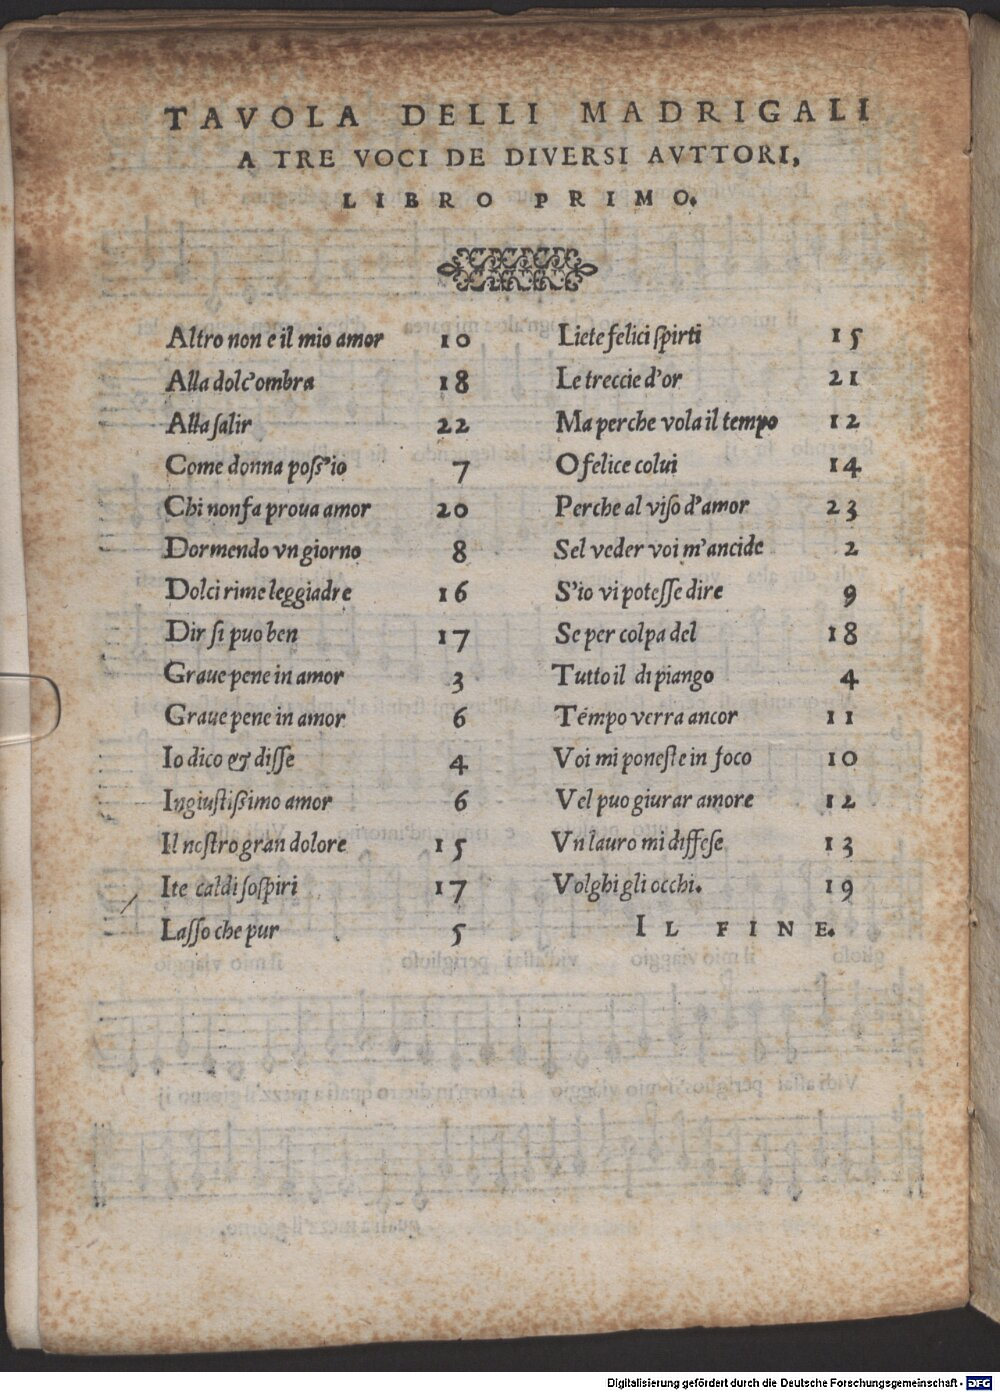 TAVOLA DELLI MADRIGALI
A TRE VOCI DE DIVERSI AVTTORI,
LIBRO PRIMO.
Altro non e il mio amor 10
Alla dolc'ombra 18
Alla ſalir 22
Come donna poſs'io 7
Chi non fa proua amor 20
Dormendo vn giorno 8
Dolci rime leggiadre 16
Dir ſi puo ben 17
Graue pene in amor 3
Graue pene in amor 6
Io dico & diſſe 4
Ingiuſtiſsimo amor 6
Il noſtro gran dolore 15
Ite caldi ſoſpiri 17
Laſſo che pur 5
Liete felici ſpirti 15
Le treccie d'or 21
Ma perche vola il tempo 12
O felice colui 14
Perche al viſo d'amor 23
Sel veder voi m'ancide 2
S'io vi poteſſe dire 9
Se per colpa del 18
Tutto il di piango 4
Témpo verra ancor 11
Voi mi poneſte in foco 10
Vel puo giurar amore 12
Vn lauro mi diffeſe 13
Volghi gli occhi. 19
IL FINE.
Digitalisierung gefördert durch die Deutsche Forschungsgemeinschaft - DFG